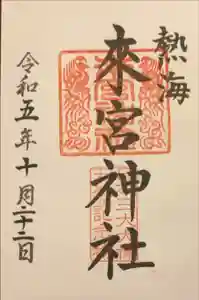 熱海
來宮神社
令和五年十月二十二日